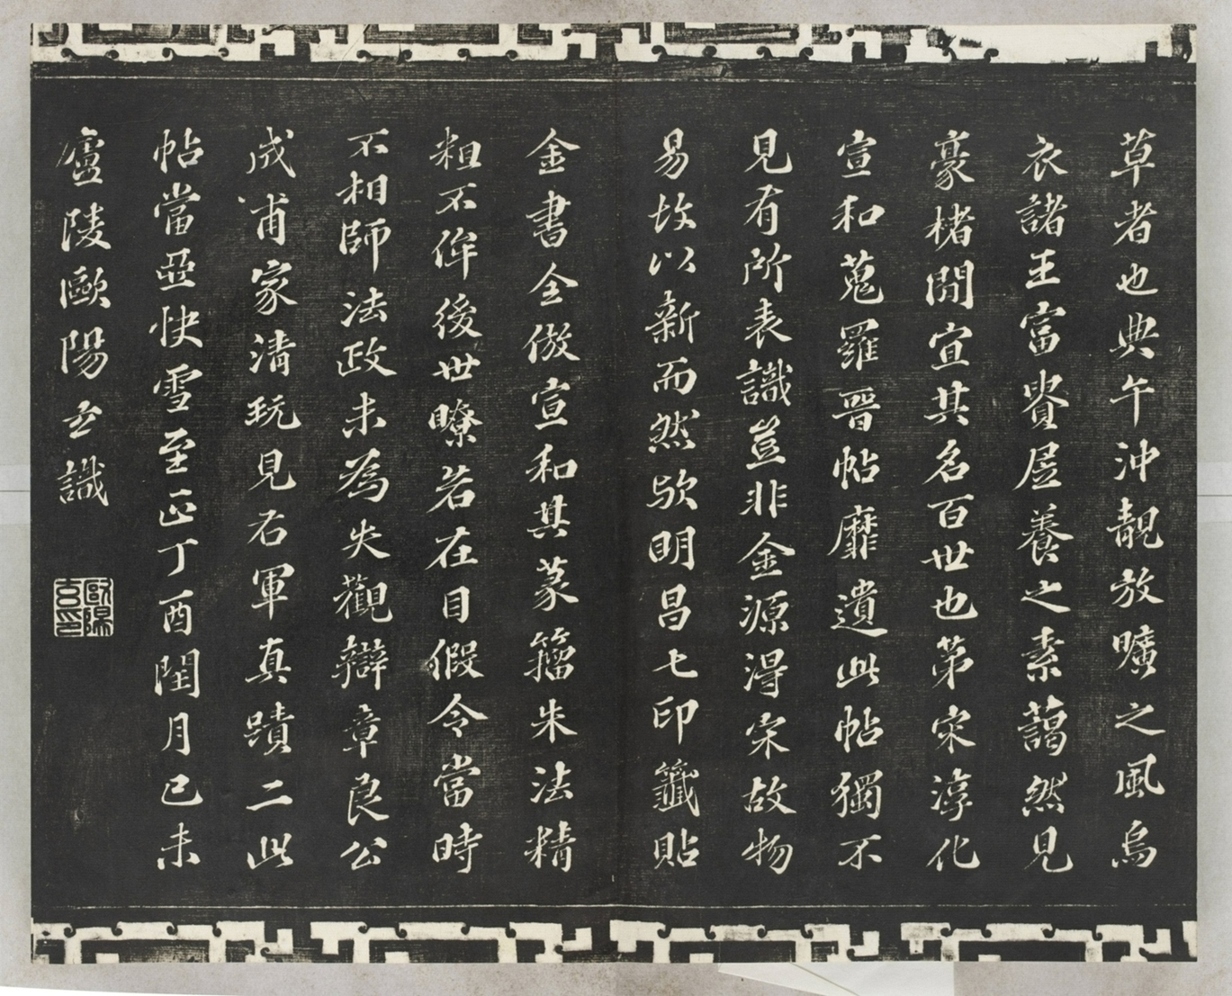 草者也典午沖靚放曠之風烏
衣諸王富貴居養之素藹然見
豪楮間宜其名百世也第宋淳化
宣和蒐羅晉帖靡遺此帖獨不
見有所表識豈非金源得宋故物
易故以新而然歟明昌七印籤貼
金書全倣宣和其篆籀朱法精
粗不侔後世瞭若在目假令當時
不相師法政未為失觀辯章良公
成甫家清玩見右軍真蹟二此
帖當亞快雪至正丁酉閏月己未
廬陵歐陽玄識
歐陽玄印